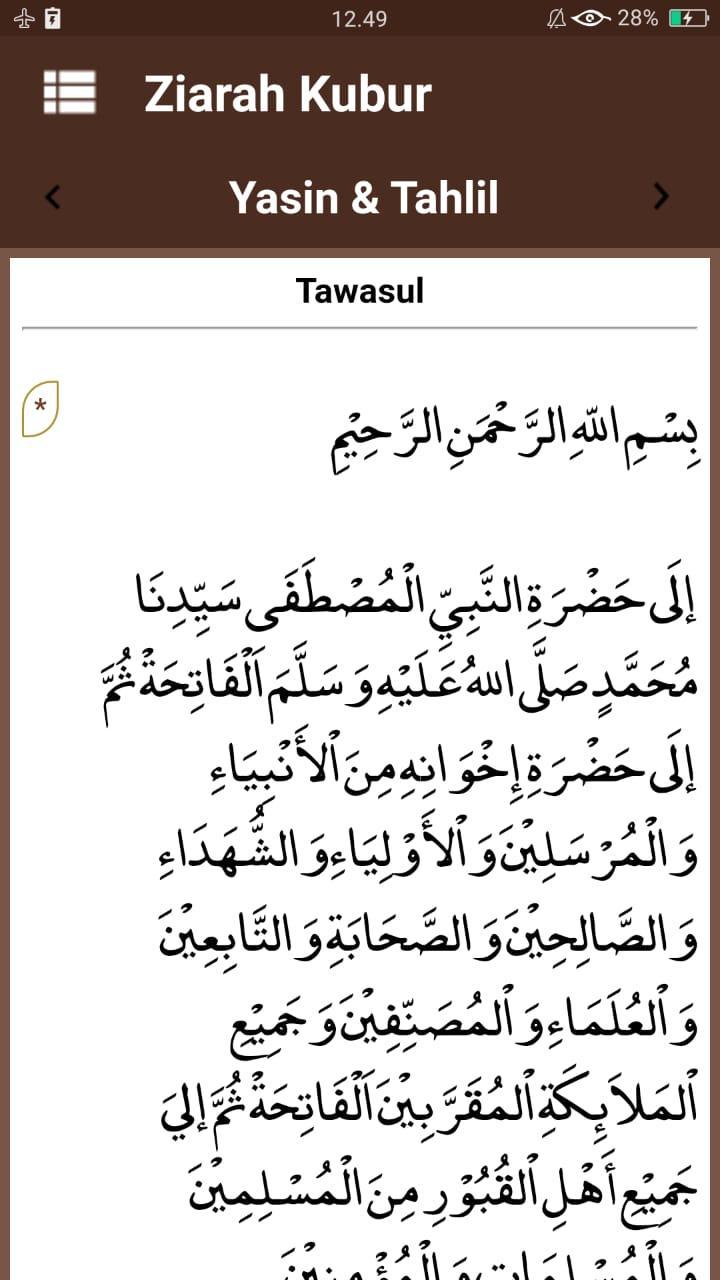 12.49
28%
Ziarah Kubur
Yasin & Tahlil
Tawasul
*
بِسْمِ اللّٰهِ الرَّحْمَنِ الرَّحِيْمِ
إِلَى حَضْرَةِ النَّبِيِّ الْمُصْطَفَى سَيِّدِنَا
مُحَمَّدٍ صَلَّى اللهُ عَلَيْهِ وَ سَلَّمَ اَلْفَاتِحَةْ ثُمَّ
إِلَى حَضْرَةِ إِخْوَانِهِ مِنَ الْأَنْبِيَاءِ
وَ الْمُرْسَلِيْنَ وَ الْأَوْلِيَاءِ وَ الشُّهَدَاءِ
وَ الصَّالِحِيْنَ وَ الصَّحَابَةِ وَ التَّابِعِيْنَ
وَ الْعُلَمَاءِ وَ الْمُصَنِّفِيْنَ وَ جَمِيْعِ
الْمَلَائِكَةِ الْمُقَرَّبِيْنَ اَلْفَاتِحَةْ ثُمَّ إِليَ
جَمِيْعِ أَهْلِ الْقُبُوْرِ مِنَ الْمُسْلِمِيْنَ